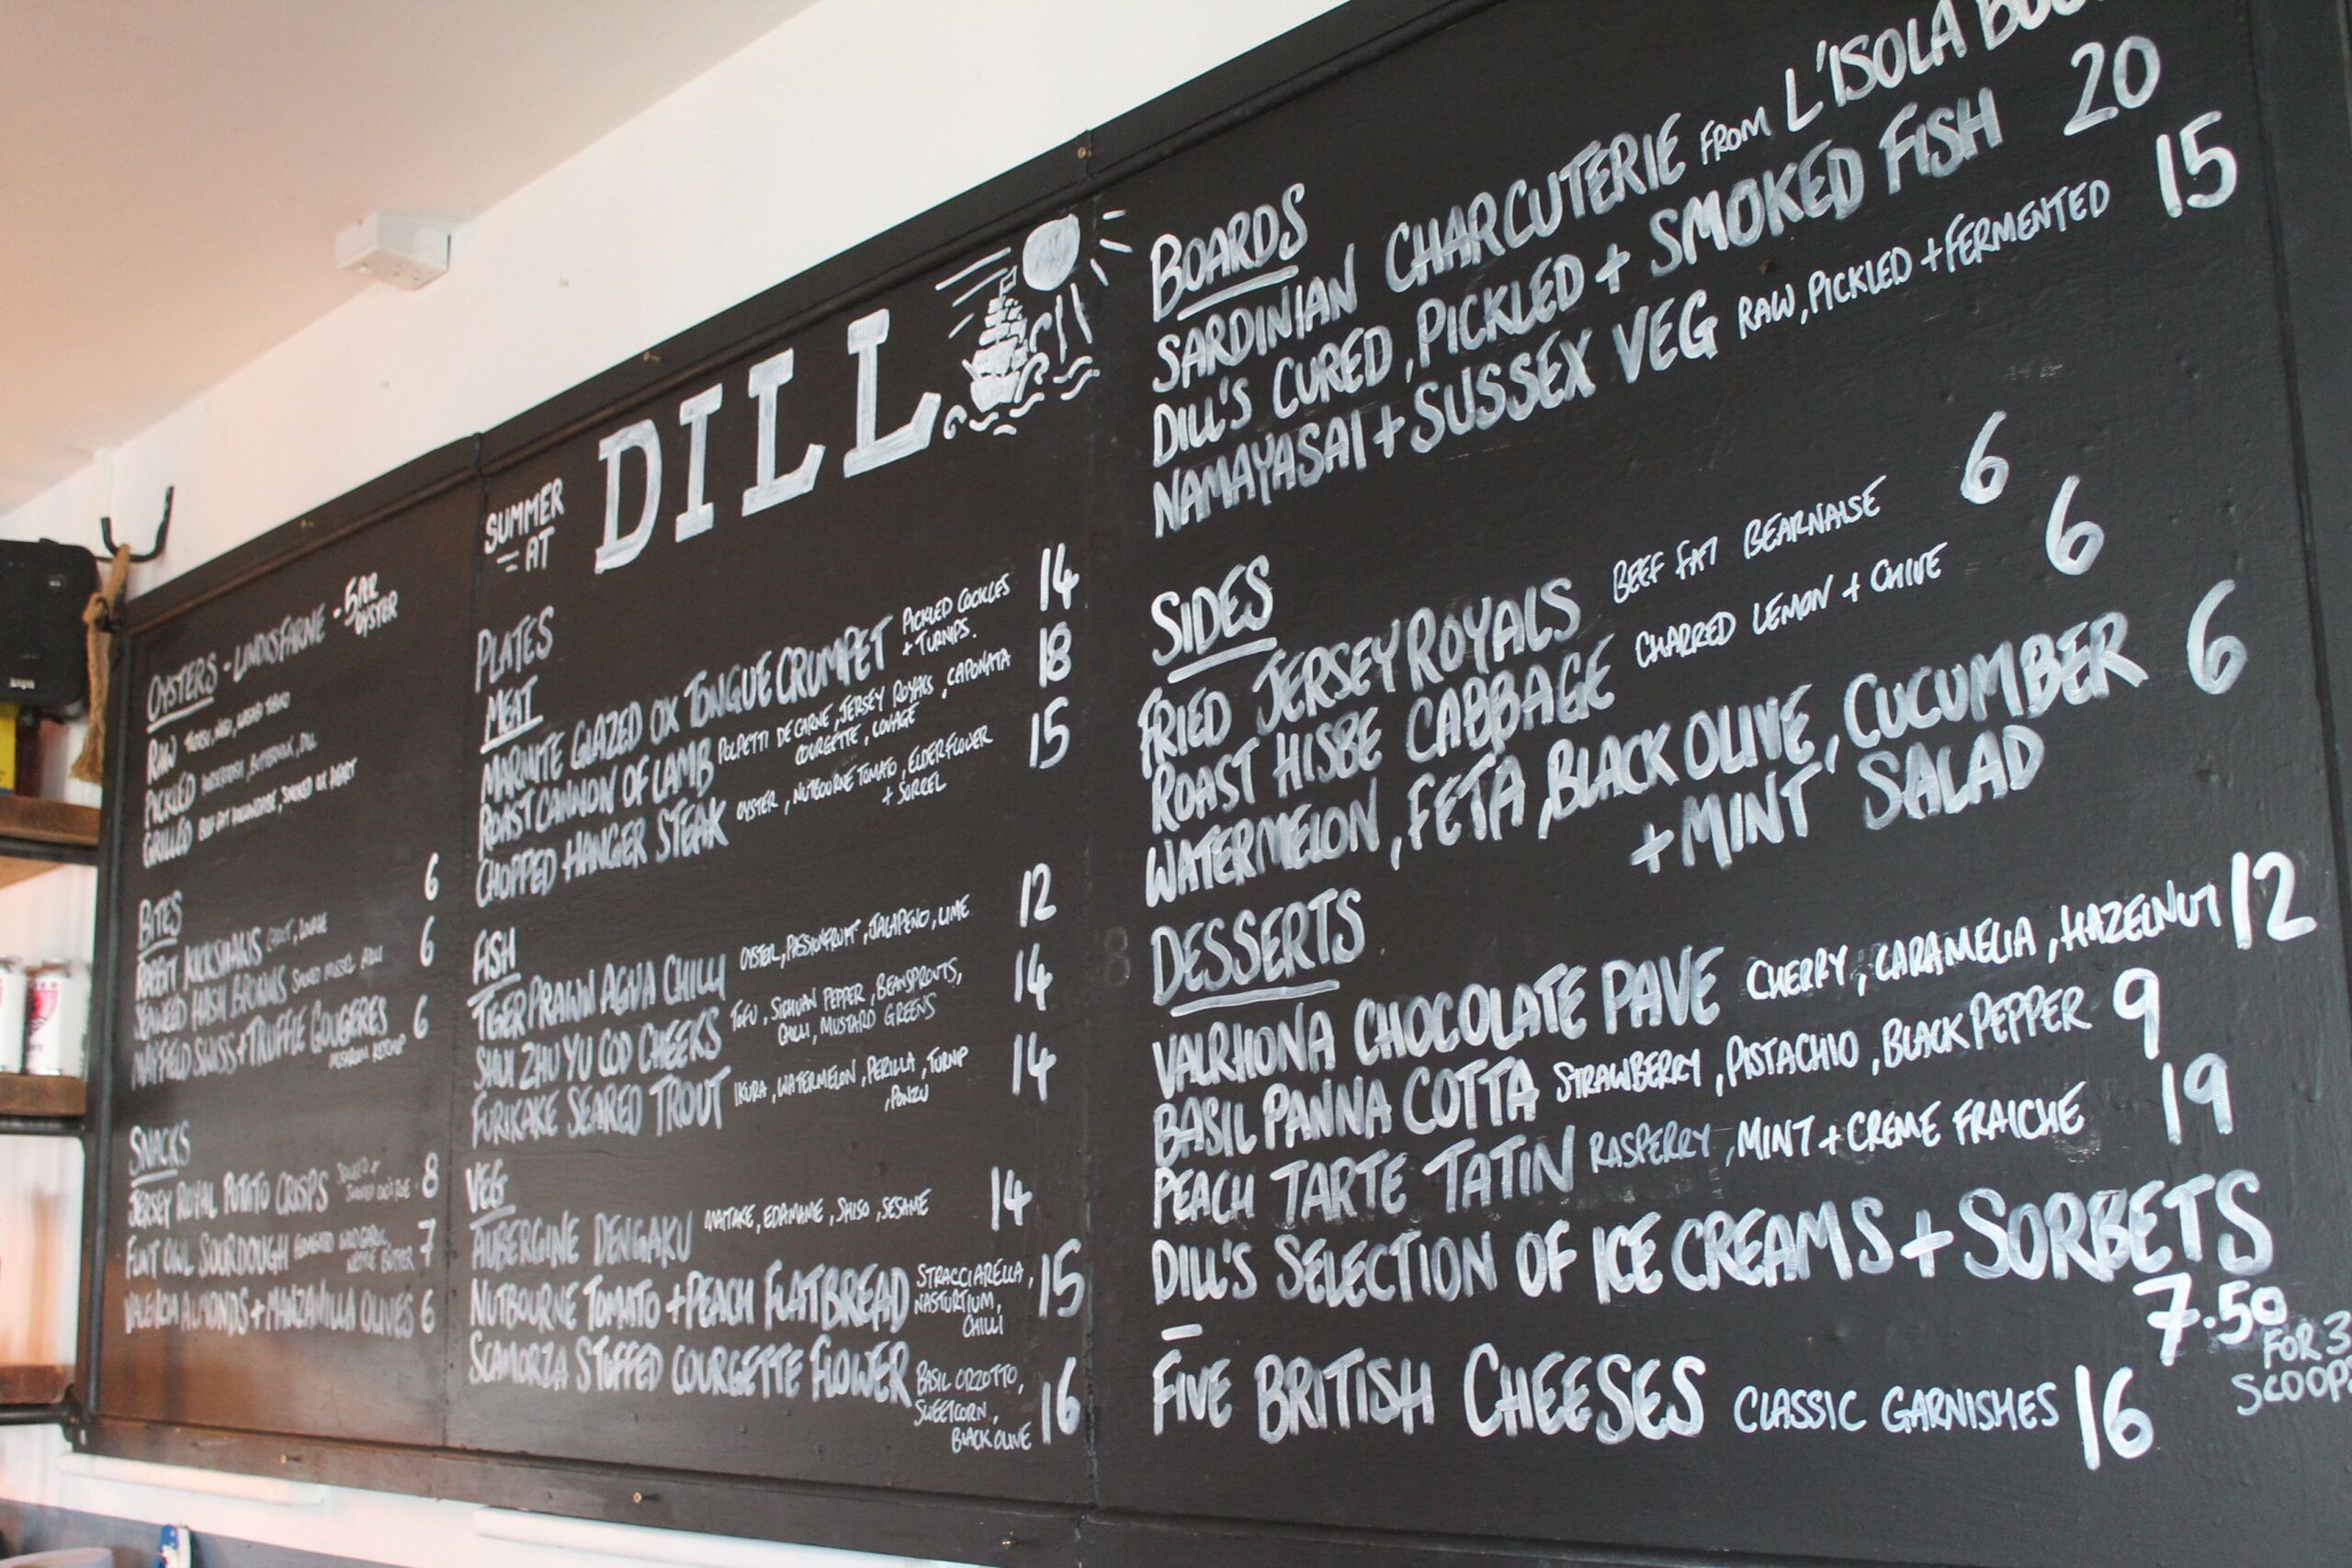 OYSTERS - LINDISFARNE - 5 PER OYSTER
RAW
PICKLED BUTTERMILK, DILL
GRILLED BEEF FAT HOLLANDAISE, SMOKED OX HEART
BITES 6
RABBIT KICKSHAWS LOVAGE
SEAWEED HASH BROWNS SMOKED MUSSEL AIOLI 6
MAYFIELD SWISS + TRUFFLE GOUGERES 6
MUSHROOM KETCHUP
SNACKS
JERSEY ROYAL POTATO CRISPS SMOKED COD'S ROE 8
FLINT OWL SOURDOUGH WILD GARLIC, NETTLE BUTTER 7
VALENCIA ALMONDS + MANZANILLA OLIVES 6
SUMMER
AT
DILL
PLATES
MEAT
MARMITE GLAZED OX TONGUE CRUMPET PICKLED COCKLES + TURNIPS. 14
ROAST CANNON OF LAMB POLPETTI DE CARNE, JERSEY ROYALS, CAPONATA 18
COURGETTE, LOVAGE
CHOPPED HANGER STEAK OYSTER, NUTBOURNE TOMATO, ELDERFLOWER 15
+ SORREL
FISH
TIGER PRAWN AGUA CHILLI OYSTER, PASSIONFRUIT, JALAPENO, LIME 12
SHUI ZHU YU COD CHEEKS TOFU, SICHUAN PEPPER, BEANSPROUTS, 14
CHILLI, MUSTARD GREENS
FURIKAKE SEARED TROUT IKURA, WATERMELON, PERILLA, TURNIP 14
, PONZU
VEG
AUBERGINE DENGAKU MAITAKE, EDAMAME, SHISO, SESAME 14
NUTBOURNE TOMATO + PEACH FLATBREAD STRACCIARELLA, 15
NASTURTIUM,
CHILLI
SCAMORZA STUFFED COURGETTE FLOWER BASIL ORZOTTO, 16
SWEETCORN,
BLACK OLIVE
BOARDS
SARDINIAN CHARCUTERIE FROM L'ISOLA
DILL'S CURED, PICKLED + SMOKED FISH 20
NAMAYASAI + SUSSEX VEG RAW, PICKLED + FERMENTED 15
SIDES
FRIED JERSEY ROYALS BEEF FAT BEARNAISE 6
ROAST HISBE CABBAGE CHARRED LEMON + CHIVE 6
WATERMELON, FETA, BLACK OLIVE, CUCUMBER 6
+ MINT SALAD
DESSERTS
VALRHONA CHOCOLATE PAVE CHERRY, CARAMELIA, HAZELNUT 12
BASIL PANNA COTTA STRAWBERRY, PISTACHIO, BLACK PEPPER 9
PEACH TARTE TATIN RASPERRY, MINT + CREME FRAICHE 19
DILL'S SELECTION OF ICE CREAMS + SORBETS
7.50
FOR 3
SCOOPS
FIVE BRITISH CHEESES CLASSIC GARNISHES 16